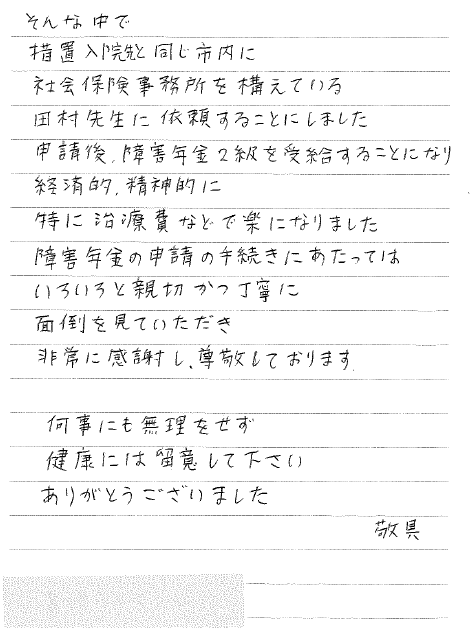 そんな中で
措置入院先と同じ市内に
社会保険事務所を構えている
田村先生に依頼することにしました
申請後、障害年金2級を受給することになり
経済的、精神的に
特に治療費などで楽になりました
障害年金の申請の手続きにあたっては
いろいろと親切かつ丁寧に
面倒を見ていただき
非常に感謝し、尊敬しております
何事にも無理をせず
健康には留意して下さい
ありがとうございました
敬具